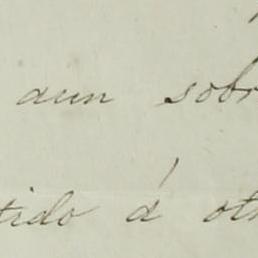 aun sobr
tido á ot